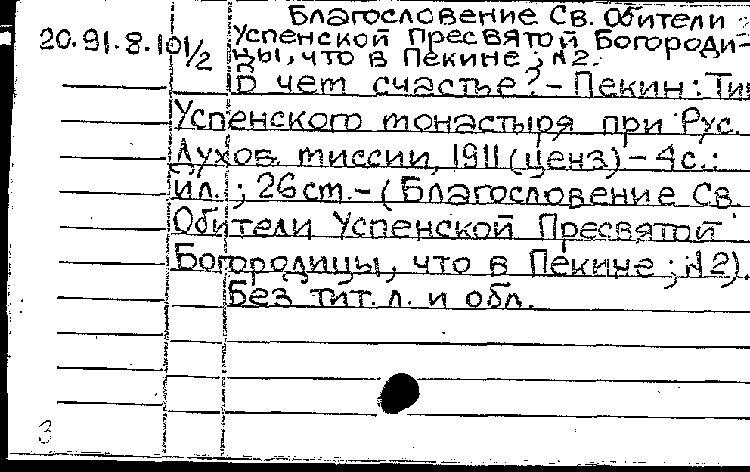 Благословение Св. Обители
20.91.8.101/2 Успенской Пресвятой Богороди-
цы, что в Пекине; №2.
В чем счастье? – Пекин: Тип
Успенского монастыря при Рус.
Духов. миссии, 1911 (ценз) – 4с.:
ил.; 26 ст. – (Благословение Св.
Обители Успенской Пресвятой
Богородицы, что в Пекине; №2).
Без тит. л. и обл.
3